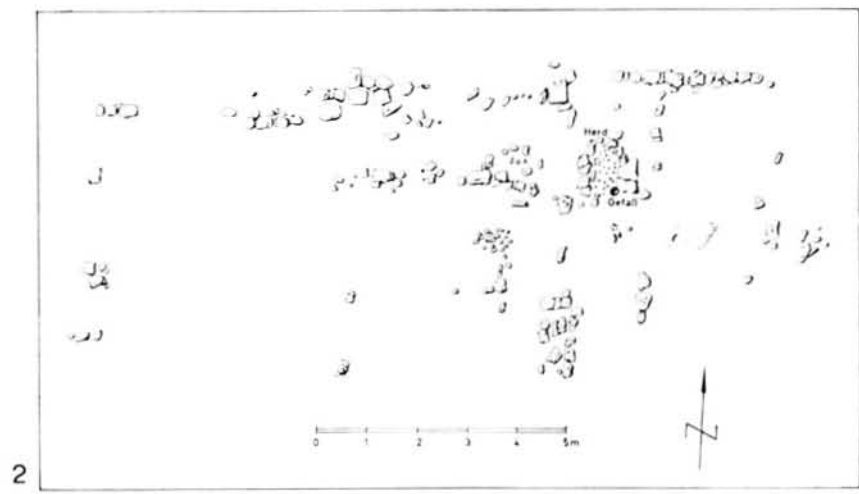 Herd
Gefäß
0 1 2 3 4 5m
N
2